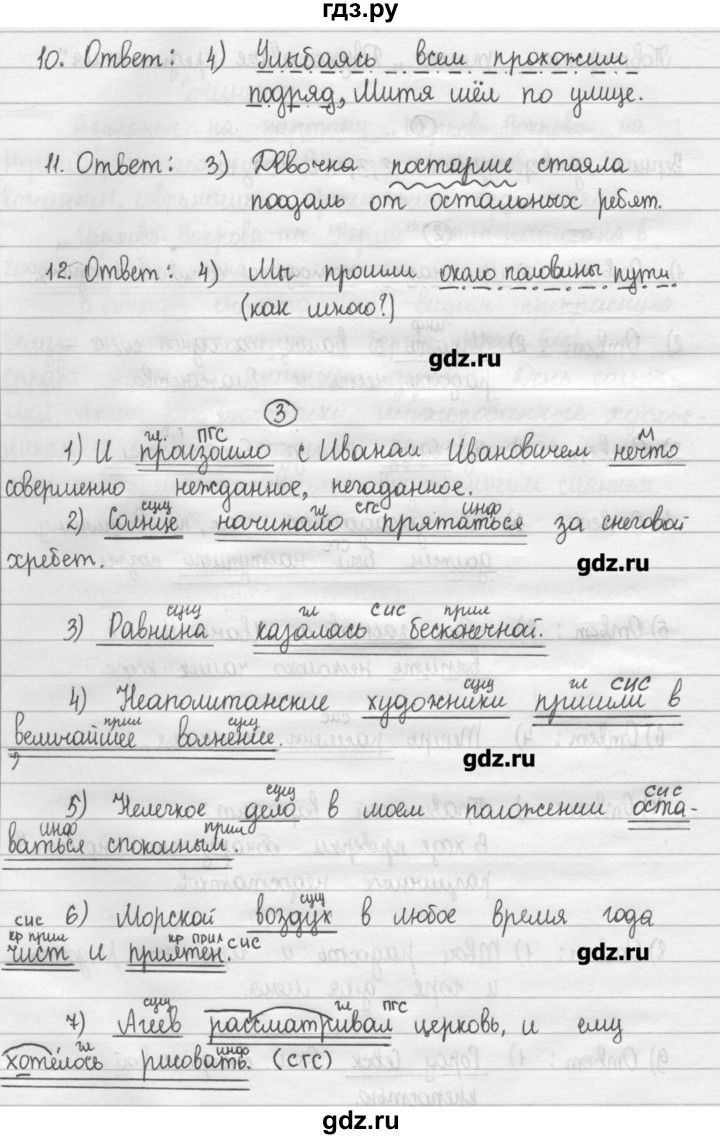 гдз.ру
10. Ответ: 4) Улыбаясь всем прохожим
подряд, Митя шёл по улице.
11. Ответ: 3) Девочка постарше стояла
поодаль от остальных ребят.
12. Ответ: 4) Мы прошли около половины пути.
(как много?)
gdz.ru
3
гл. ПГС м
1) И произошло с Иваном Ивановичем нечто
совершенно нежданное, негаданное.
сущ гл СГС инф
2) Солнце начинало прятаться за снеговой
хребет.
gdz.ru
сущ гл СИС прил
3) Равнина казалась бесконечной.
сущ гл СИС
4) Неаполитанские художники пришли в
прил сущ
величайшее волнение.
gdz.ru
сущ СИС
5) Нелегкое дело в моем положении оста-
инф прил
ваться спокойным.
сущ
6) Морской воздух в любое время года
СИС кр прил кр прил СИС
чист и приятен.
gdz.ru
сущ гл ПГС
7) Агеев рассматривал церковь, и ему
гл инф
хотелось рисовать. (СГС)
gdz.ru